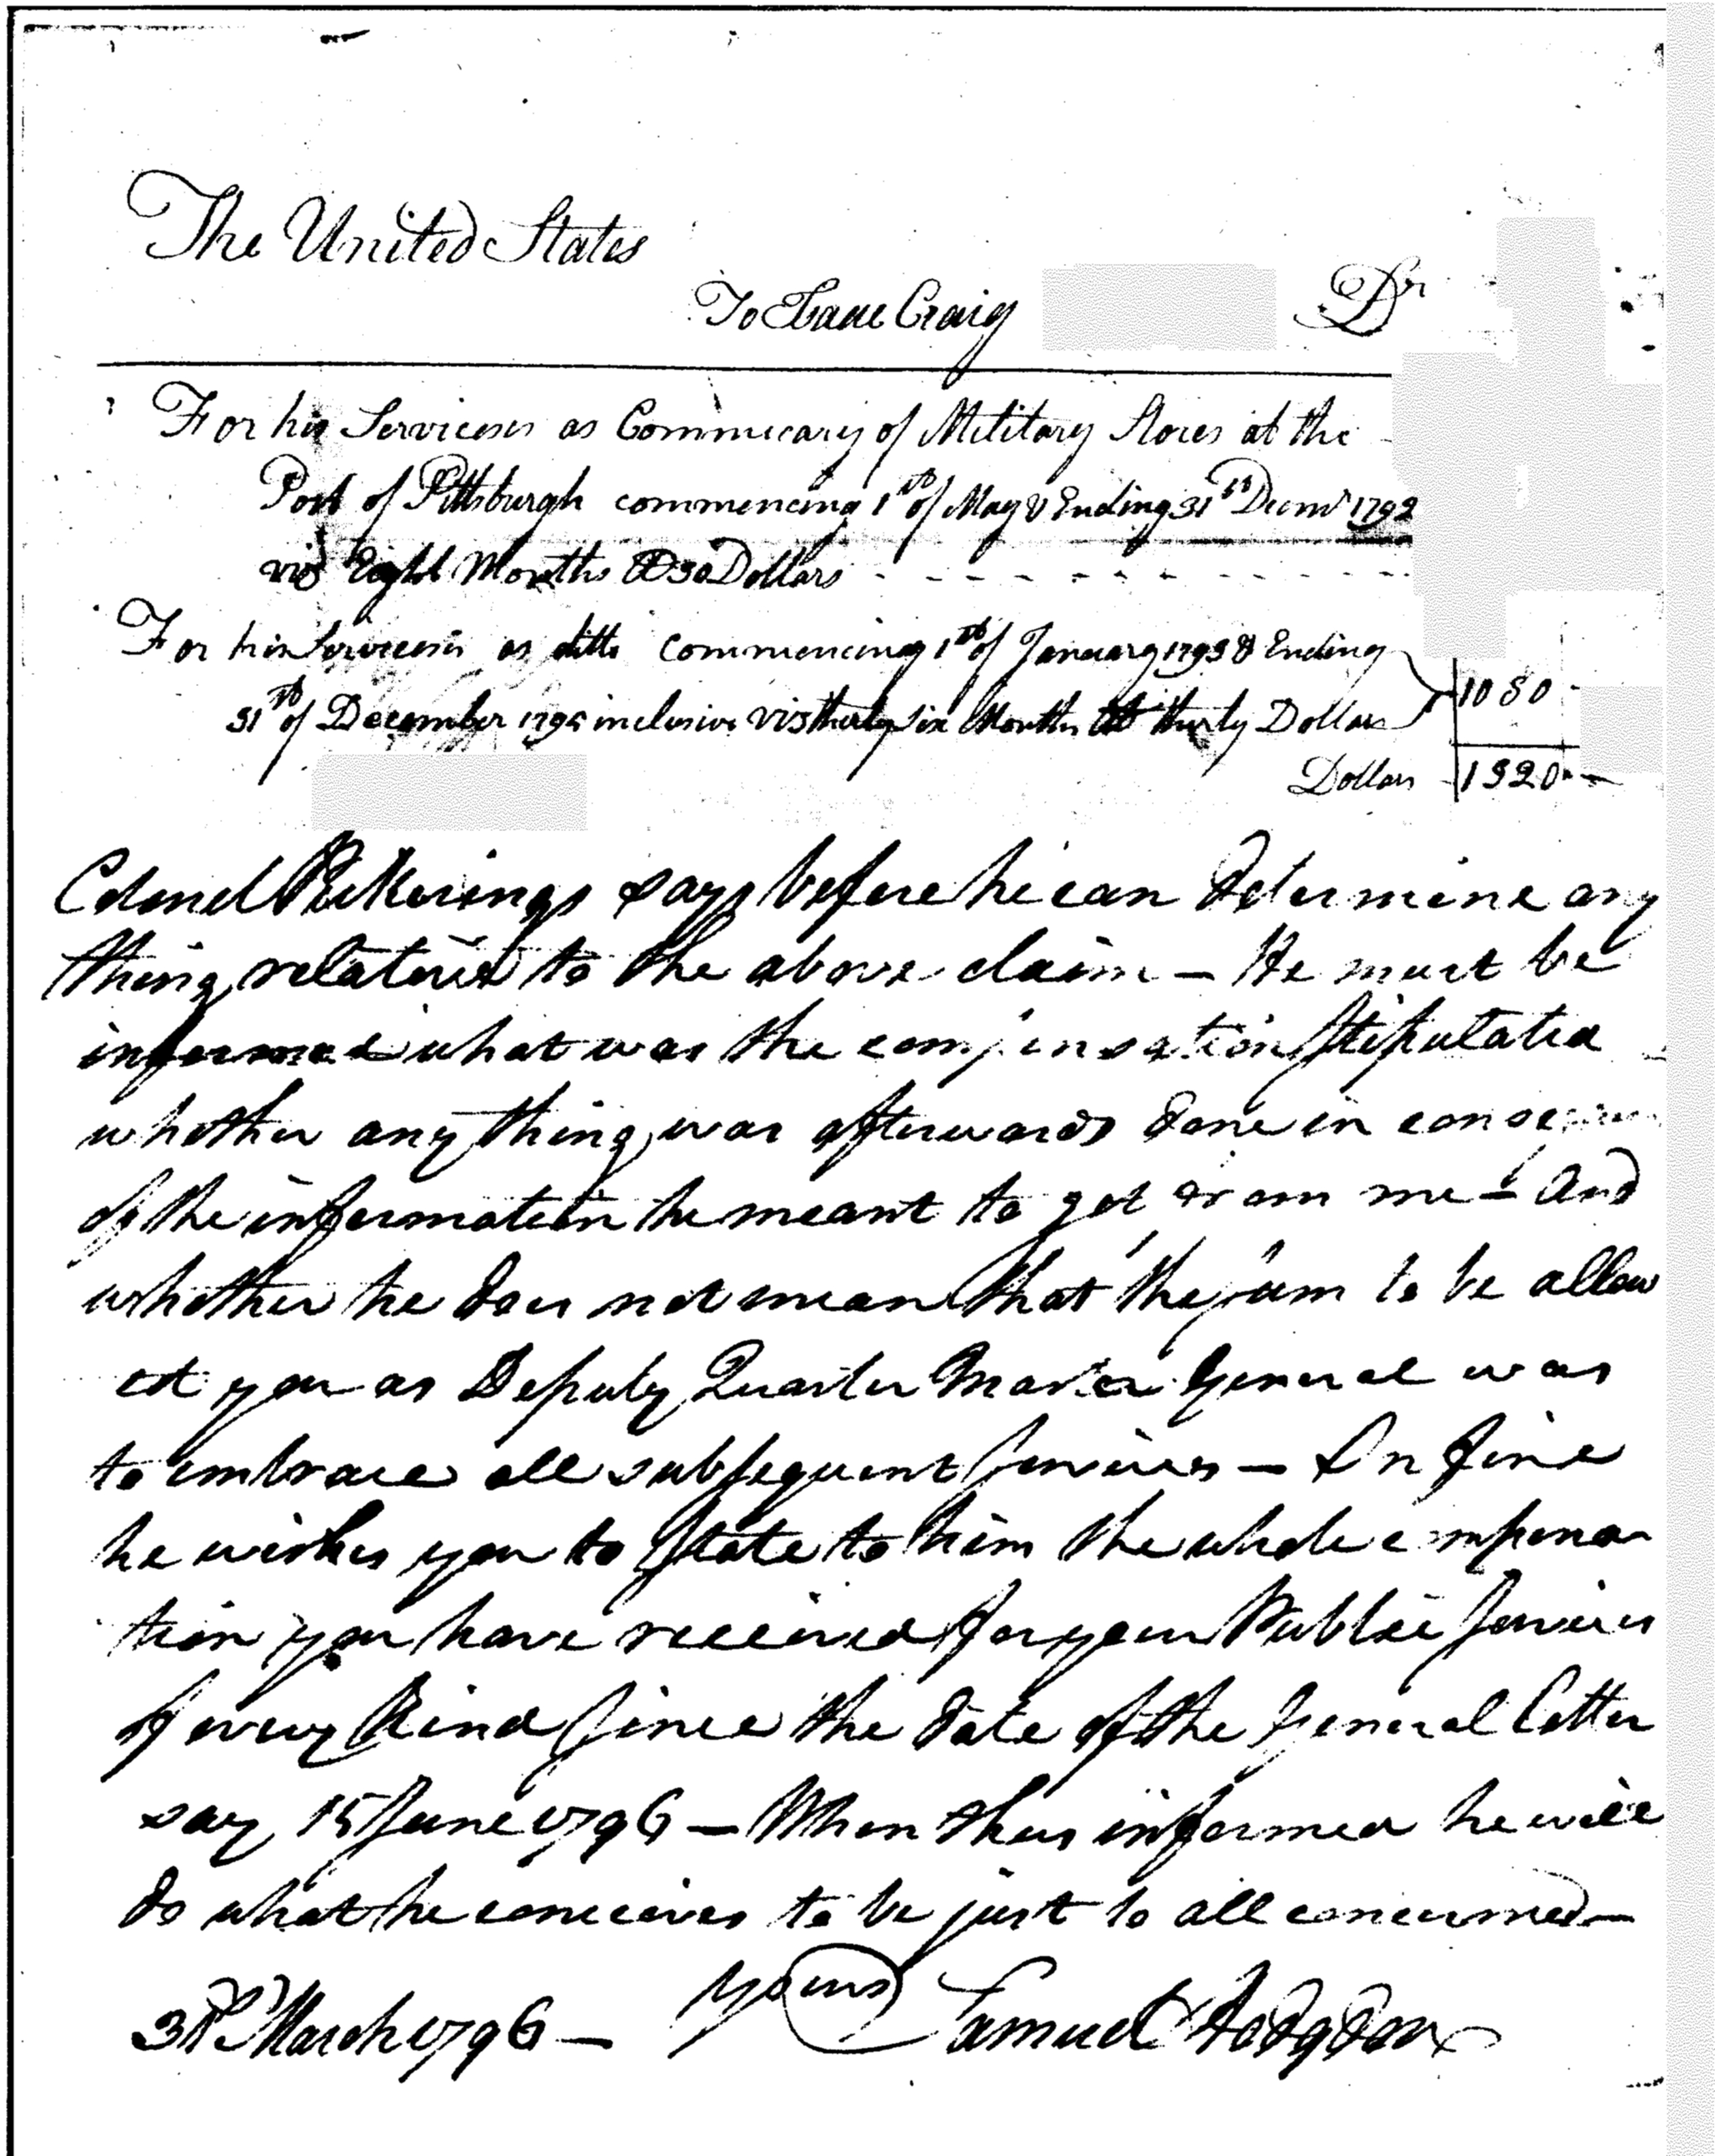 The United States
To Isaac Craig Dr
For his Services as Commissary of Military Stores at the
Post of Pittsburgh commencing 1st of May & Ending 31st Decmr 1792
viz Eight Months @ 30 Dollars
For his Services as ditto commencing 1st of January 1793 & Ending
31st of December 1795 inclusive viz thirty six Months @ thirty Dollars 1080
Dollars 1320
Colonel Pickerings says before he can determine any
thing relative to the above claim — He must be
informed what was the compensation stipulated
whether any thing was afterwards done in
of the information he meant to get from me — And
whether he does not mean that the sum to be allow
ed you as Deputy Quarter Master General was
to embrace all subsequent services — In fine
he wishes you to state to him the whole compensa
tion you have received for your Public services
of every kind since the date of the General letter
say 15 June 1796 — When thus informed he will
do what he conceives to be just to all concerned —
31st March 1796 — Yours Samuel Hodgdon